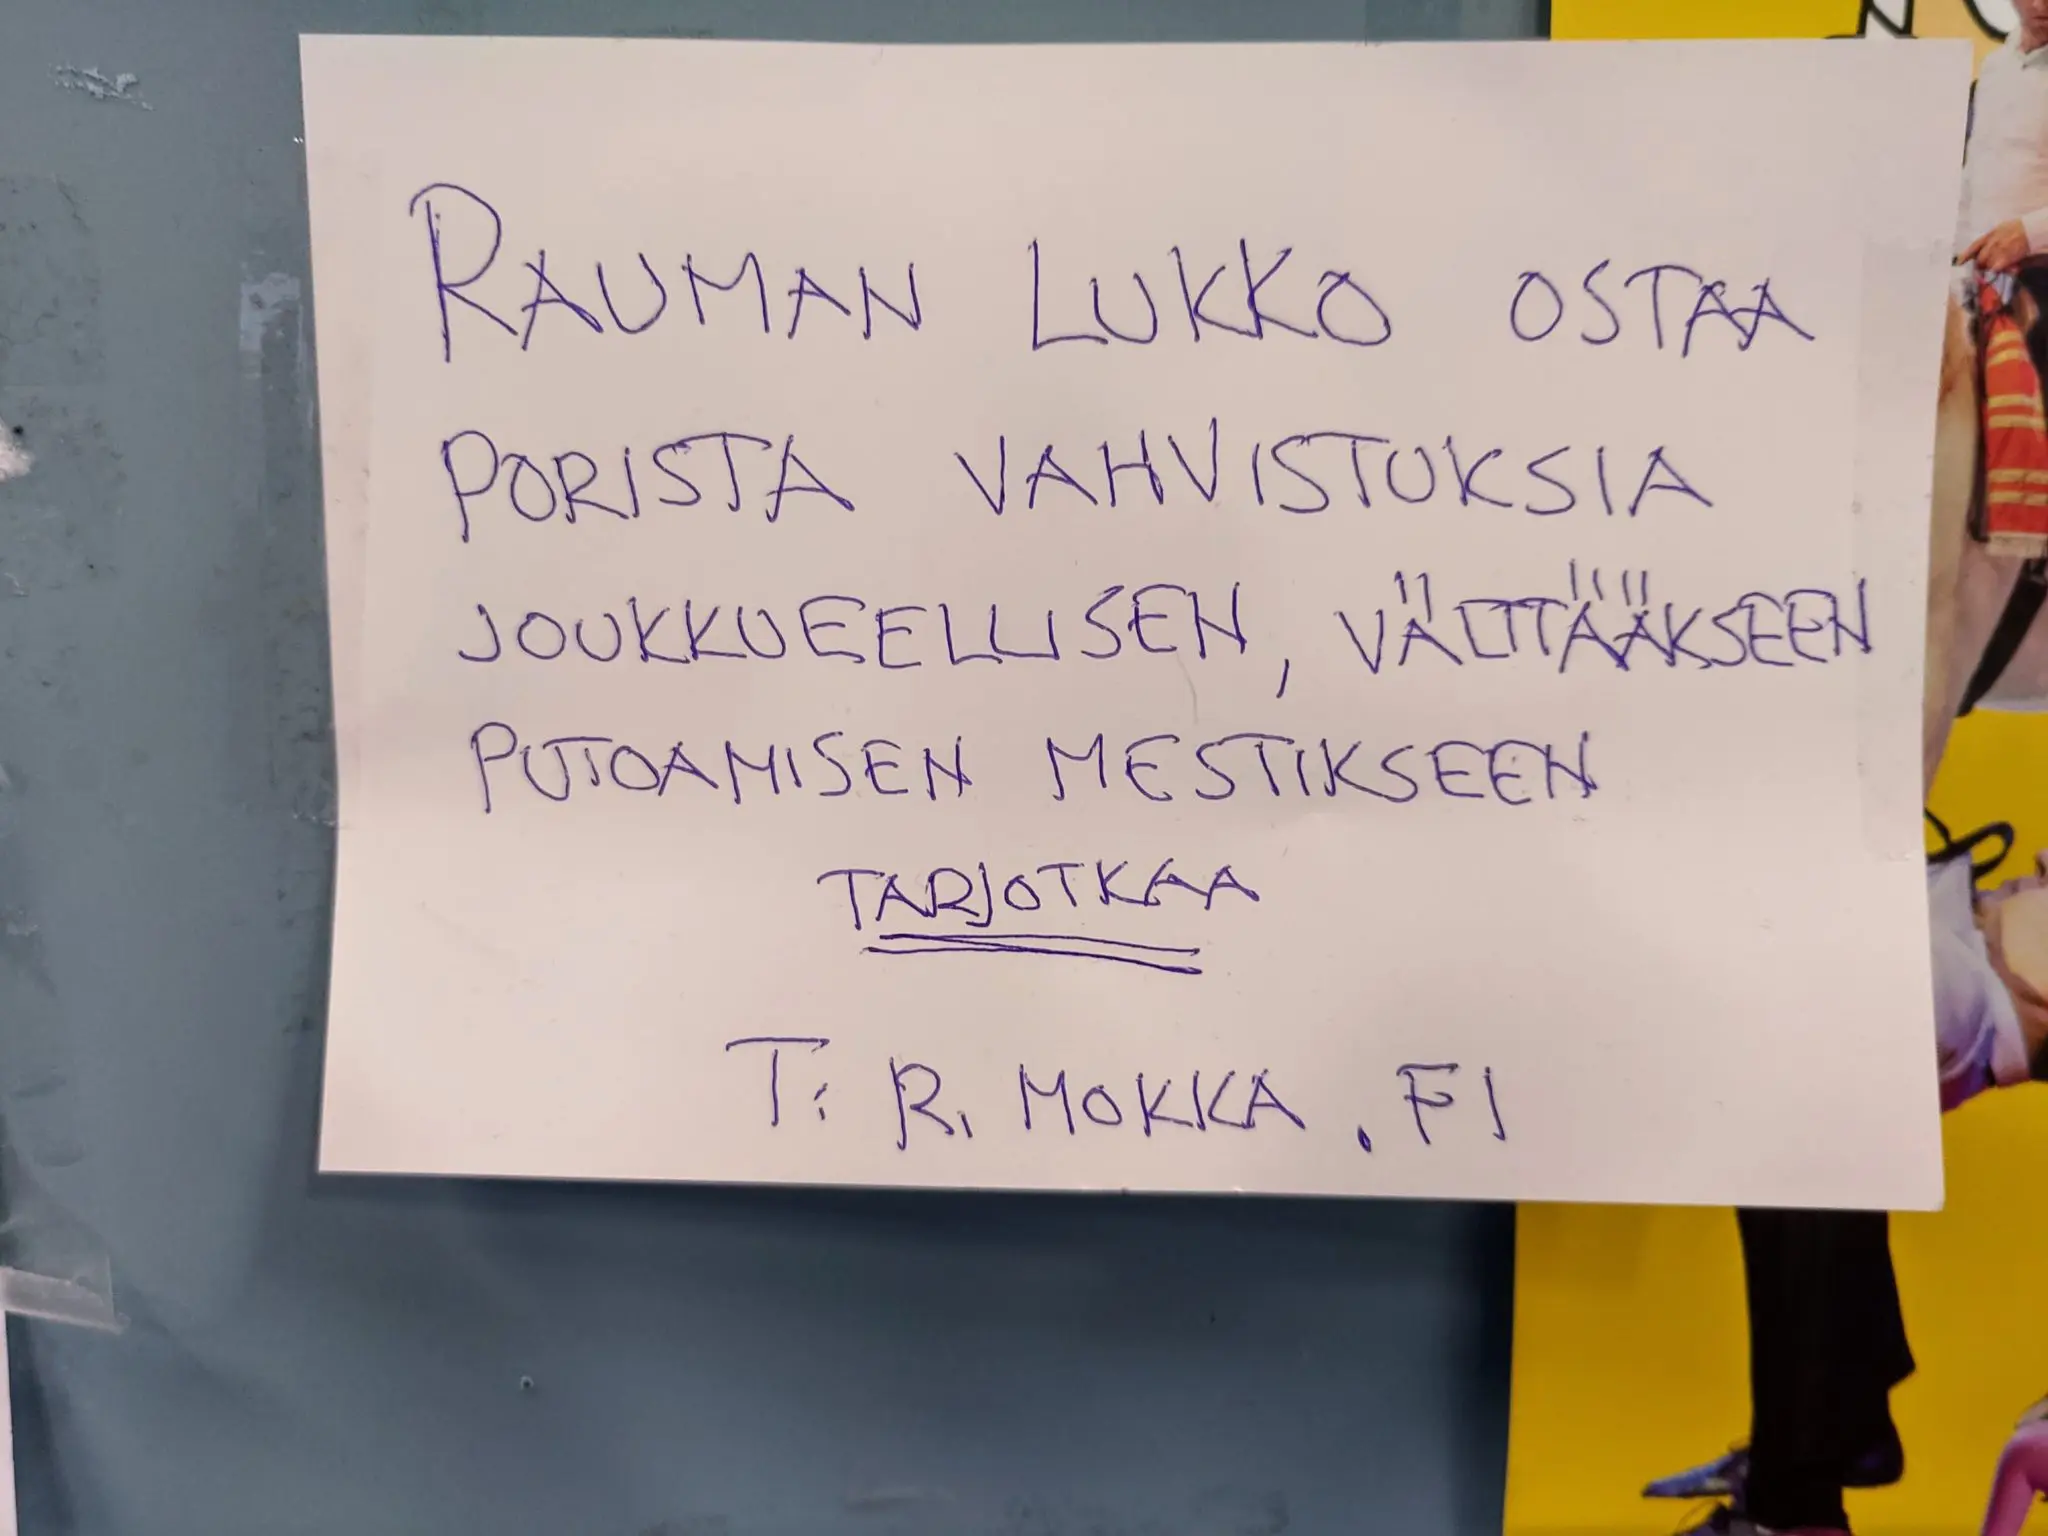 RAUMAN LUKKO OSTAA
PORISTA VAHVISTUKSIA
JOUKKUEELLISEN, VÄLTTÄÄKSEEN
PUTOAMISEN MESTIKSEEN
TARJOTKAA
T: R. MOKKA . FI